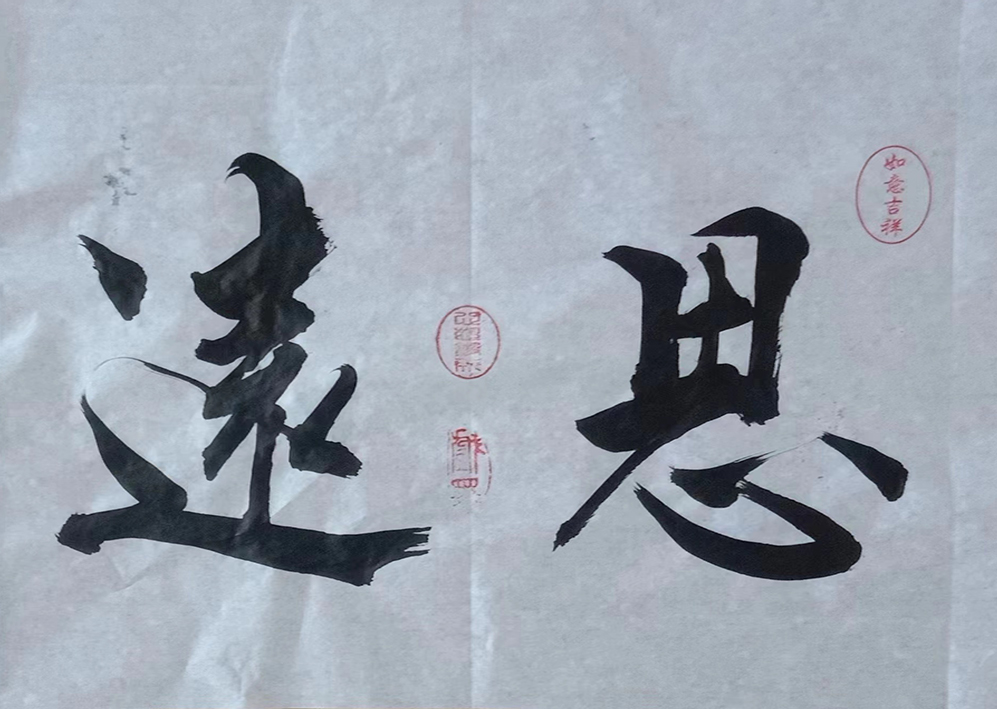 如意吉祥
思遠